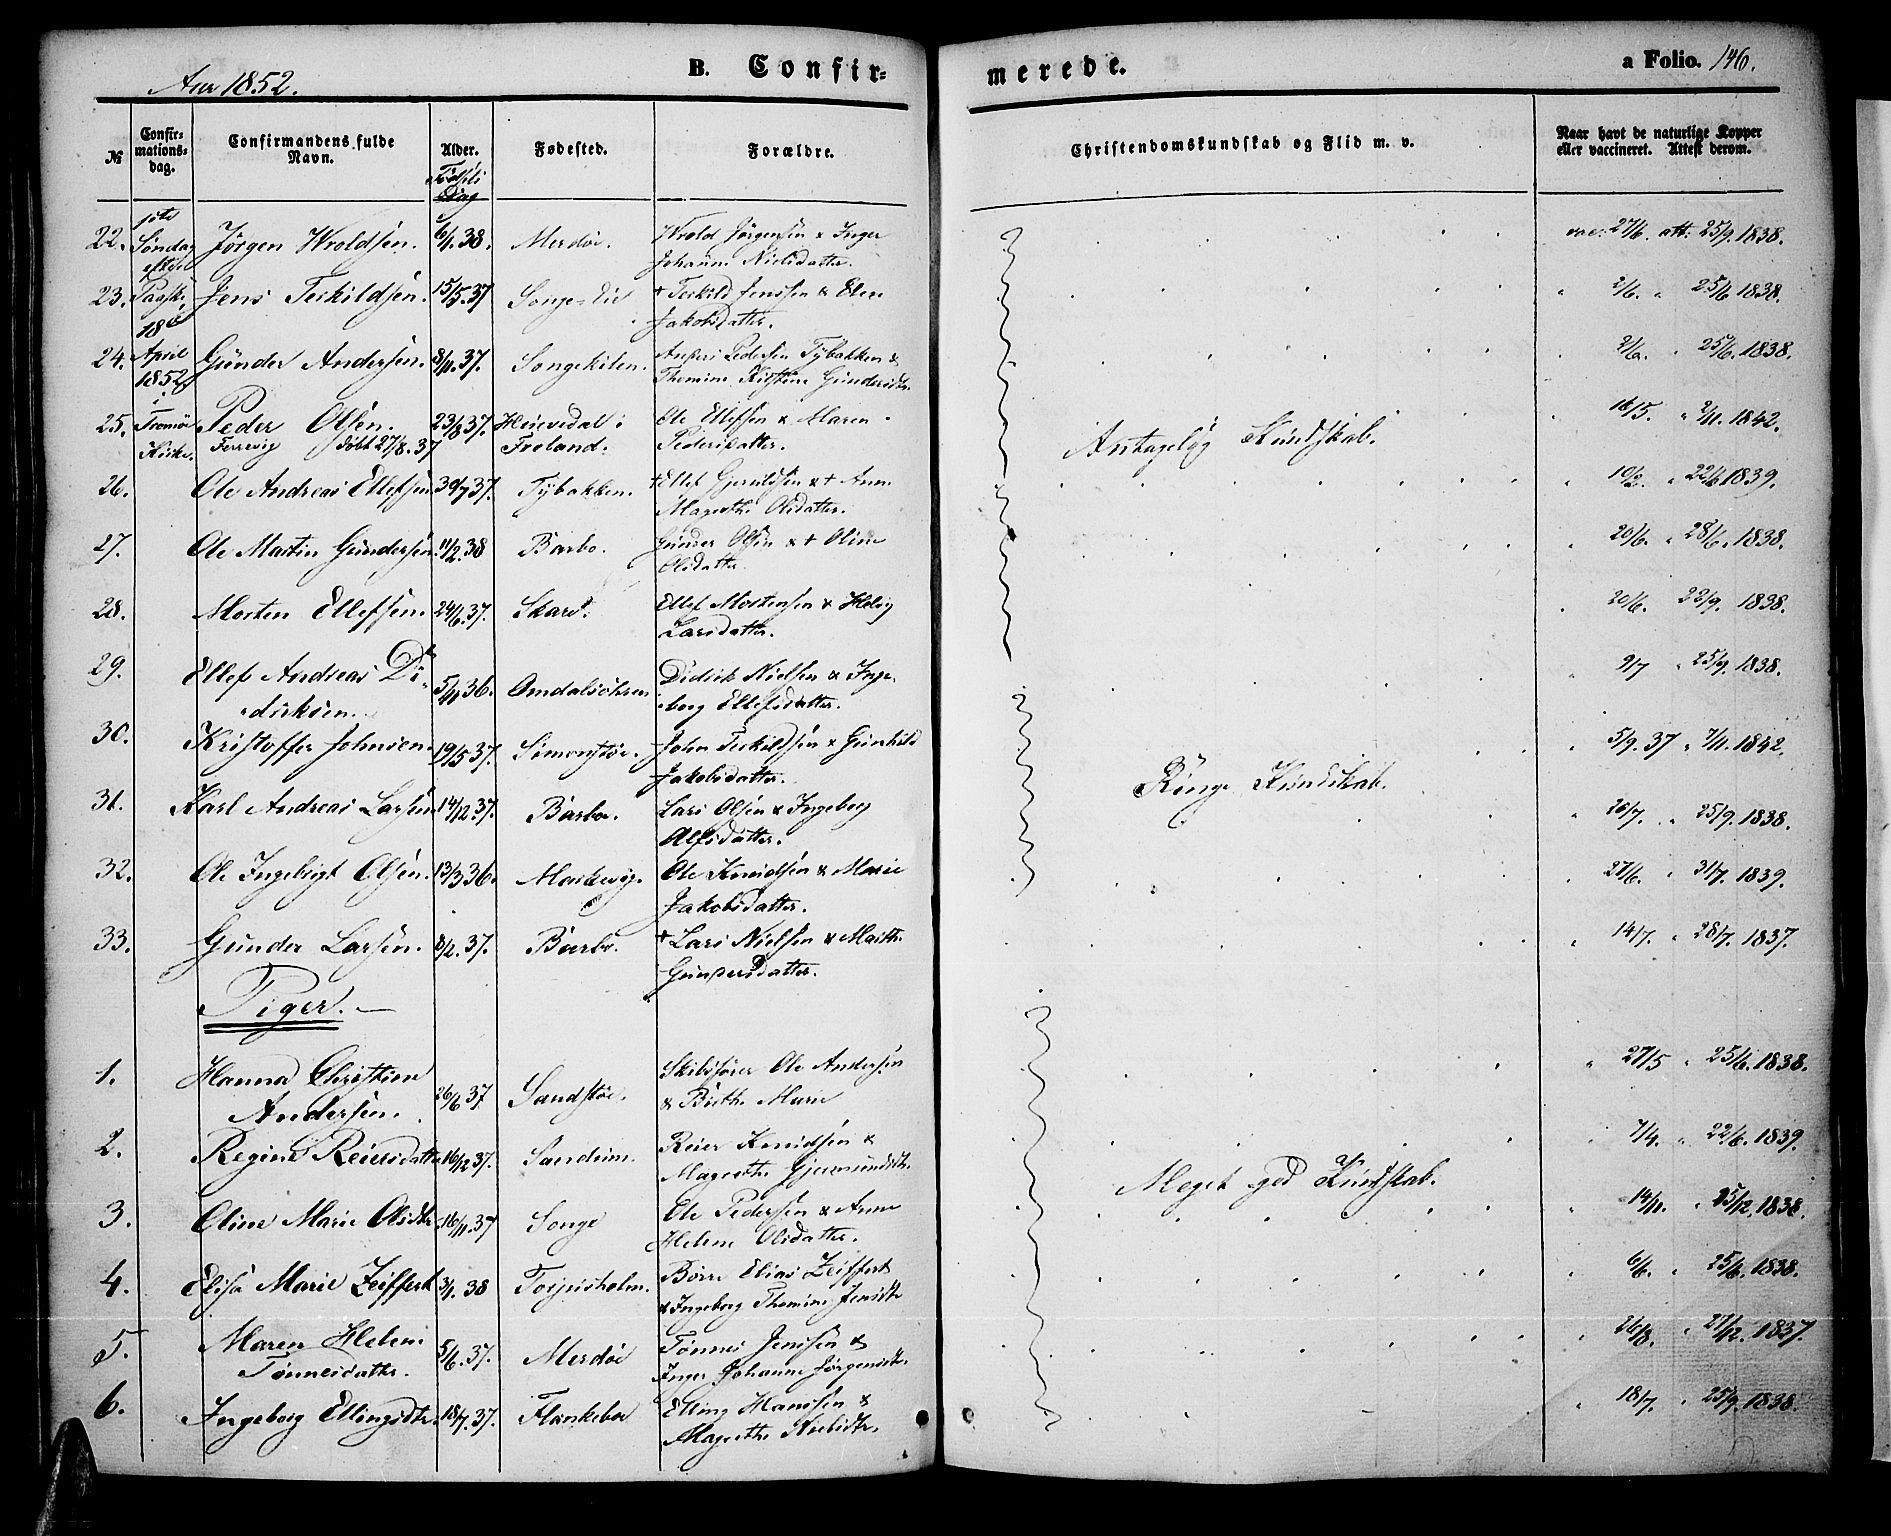 Aar 1852.
B. Confir-
merede.
a Folio. 146.
No
Confir-
mations-
dag.
Confirmandens fulde
Navn.
Alder.
Fødsels
Dag
Fødested.
Forældre.
Christendomskundskab og Flid m. v.
Naar havt de naturlige Kopper
eller vaccineret. Attest derom.
1ste
Søndag
efter
Paaske
18de
April
1852
i
Tromø
Kirke.
22. Jørgen Wroldsen. 6/1.38. Merdøe. Wrold Jørgensen & Inger
Johanne Nielsdatter.
vac: 27/6. att: 25/9.1838.
23. Jens Terkildsen. 15/5.37 Songe + Terkild Jenssen & Elen
Jakobsdatter.
" 2/6. " 25/6 1838.
24. Gunder Andersen. 8/11.37. Songekilen. Anders Pedersen Tybakken &
Thomine Kirstine Gundersdtr.
2/6. " 25/6.1838.
25. Peder Olsen. 23/8 37. i Ole Ellefsen & Maren
Ferrvig døbt 27/8.37 Froland. Pedersdatter.
Antagelig Kundskab.
" 16/5. " 2/11.1842.
26. Ole Andreas Ellefsen 30/7 37. Tybakken. + Ellef Gjeruldsen & + Anne
Magrethe Olsdatter.
" 10/2. " 22/6 1839.
27. Ole Martin Gundersen. 11/2.38 Barbo. Gunder Olsen & + Oline
Olsdatter.
" 20/6. " 28/6.1838.
28. Morten Ellefsen. 24/6.37. Skare. Ellef Mortensen & Helvig
Larsdatter.
" 20/6. 22/9. 1838.
29. Ellef Andreas Di-
driksen. 5/11 36. Omdalsøhren Didrik Nielsen & Inge-
borg Ellefsdatter.
" 9/7 " 25/9.1838.
30. Kristoffer Johnsen. 19/5 37. Simonstøe. John Terkildsen & Gunhild
Jakobsdatter.
" 5/9.37 " 7/11.1842.
Ringe Kundskab.
31. Karl Andreas Larsen 14/12 37. Barbo. Lars Olsen & Ingeborg
Alfsdatter.
" 26/7. " 25/9.1838.
32. Ole Ingebrigt Olsen. 13/3 36. Markevig. Ole Knudsen & Marie
Jakobsdatter.
" 27/6. " 31/7. 1839.
33. Gunder Larsen. 8/2.37. Barbo. + Lars Nielsen & Marthe
Gundersdatter.
" 14/7. " 28/7. 1837.
Piger.
1. Hanna Christine
Andersen. 26/6 37 Sandstøe. Skibsfører Ole Andersen
& Birthe Marie
" 27/5 " 25/6.1838.
2. Regine Reiersdatter 16/12 37. Sandum. Reier Knudsen &
Magrethe Gjermundsdtr.
" 7/4. " 22/6.1839.
Meget god Kundskab.
3. Oline Marie Olsdtr. 16/11 37 Songe Ole Pedersen & Anne
Helene Olsdatter.
" 14/11. " 25/12.1838.
4. Elisa Marie Zeiffert 3/1.38 Torjusholm. Børre Elias Zeiffert
& Ingeborg Thomine Jensdtr
" 6/6. " 25/6.1838.
5. Maren Helene
Tønnesdatter. 5/6.37. Merdøe Tønnes Jenssen &
Inger Johanne Jørgensdtr.
" 26/8. " 27/12.1837.
6. Ingeborg Ellingsdtr. 18/7.37. Flankeboe Elling Hanssen &
Magrethe Nielsdtr.
" 18/7. " 25/9.1838.